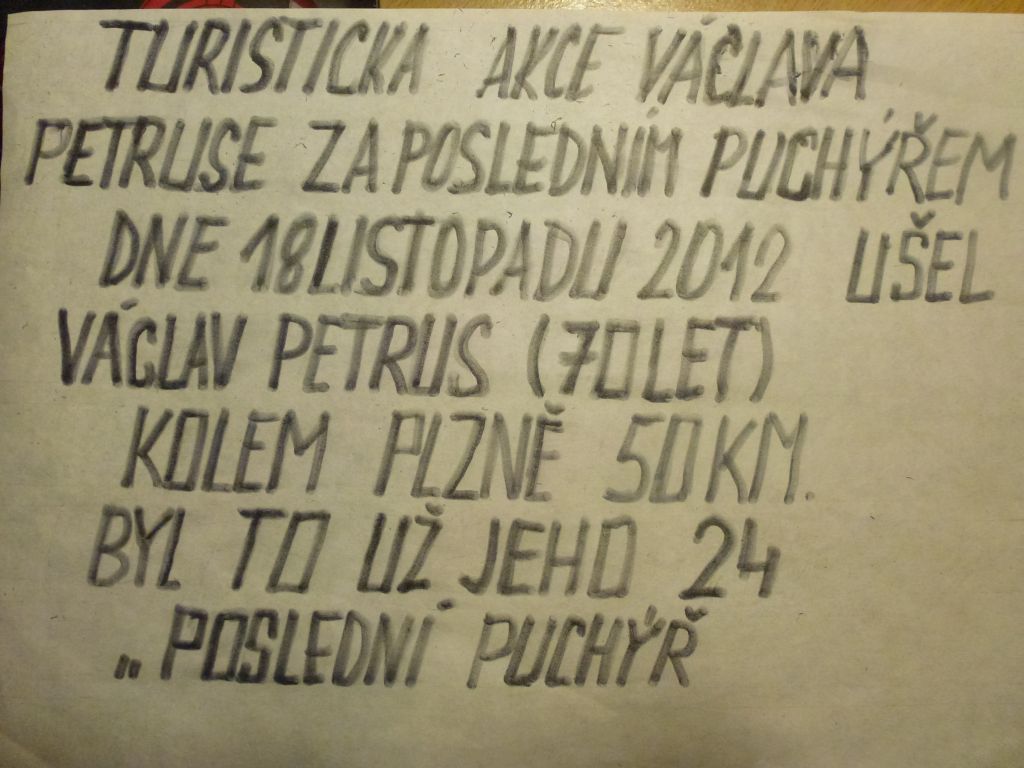 TURISTICKA AKCE VÁCLAVA
PETRUSE ZA POSLEDNÍM PUCHÝŘEM
DNE 18 LISTOPADU 2012 UŠEL
VÁCLAV PETRUS (70 LET)
KOLEM PLZNĚ 50 KM.
BYL TO UŽ JEHO 24
„POSLEDNÍ PUCHÝŘ